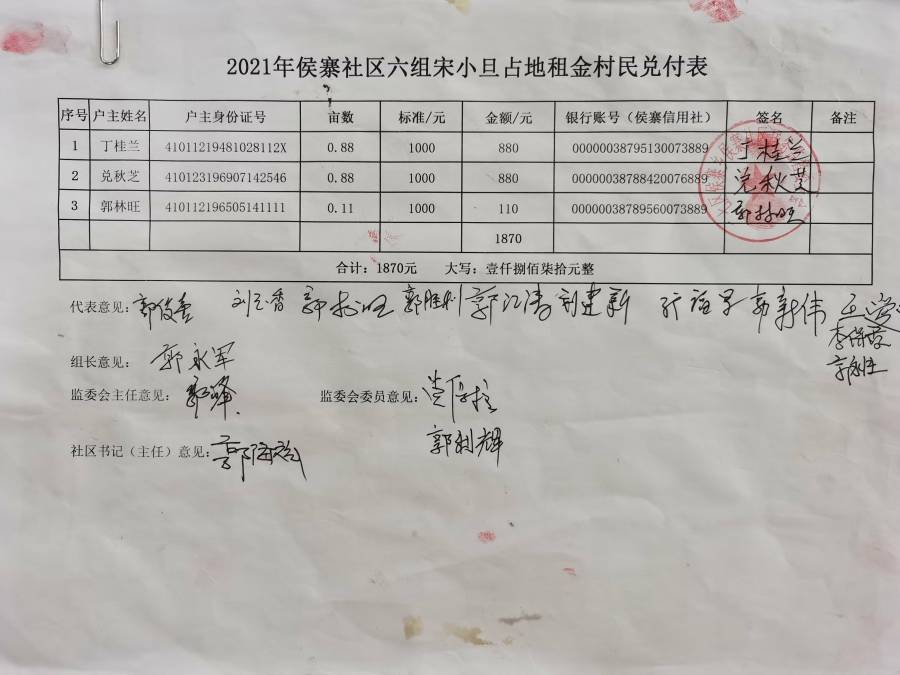 2021年侯寨社区六组宋小旦占地租金村民兑付表
序号 户主姓名 户主身份证号 亩数 标准/元 金额/元 银行账号（侯寨信用社） 签名 备注
1 丁桂兰 41011219481028112X 0.88 1000 880 00000038795130073889 丁桂兰
2 兑秋芝 410123196907142546 0.88 1000 880 00000038788420076889 兑秋芝
3 郭林旺 410112196505141111 0.11 1000 110 00000038789560073889 郭林旺
1870
合计：1870元 大写：壹仟捌佰柒拾元整
代表意见： 郭林旺 郭胜利 郭江涛 刘建新 郭新伟
组长意见： 郭永军
监委会主任意见： 郭峰 监委会委员意见：
郭利辉
社区书记（主任）意见：